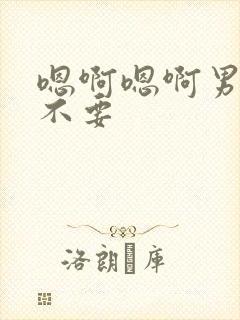 嗯啊嗯啊男
不要
洛朗庫